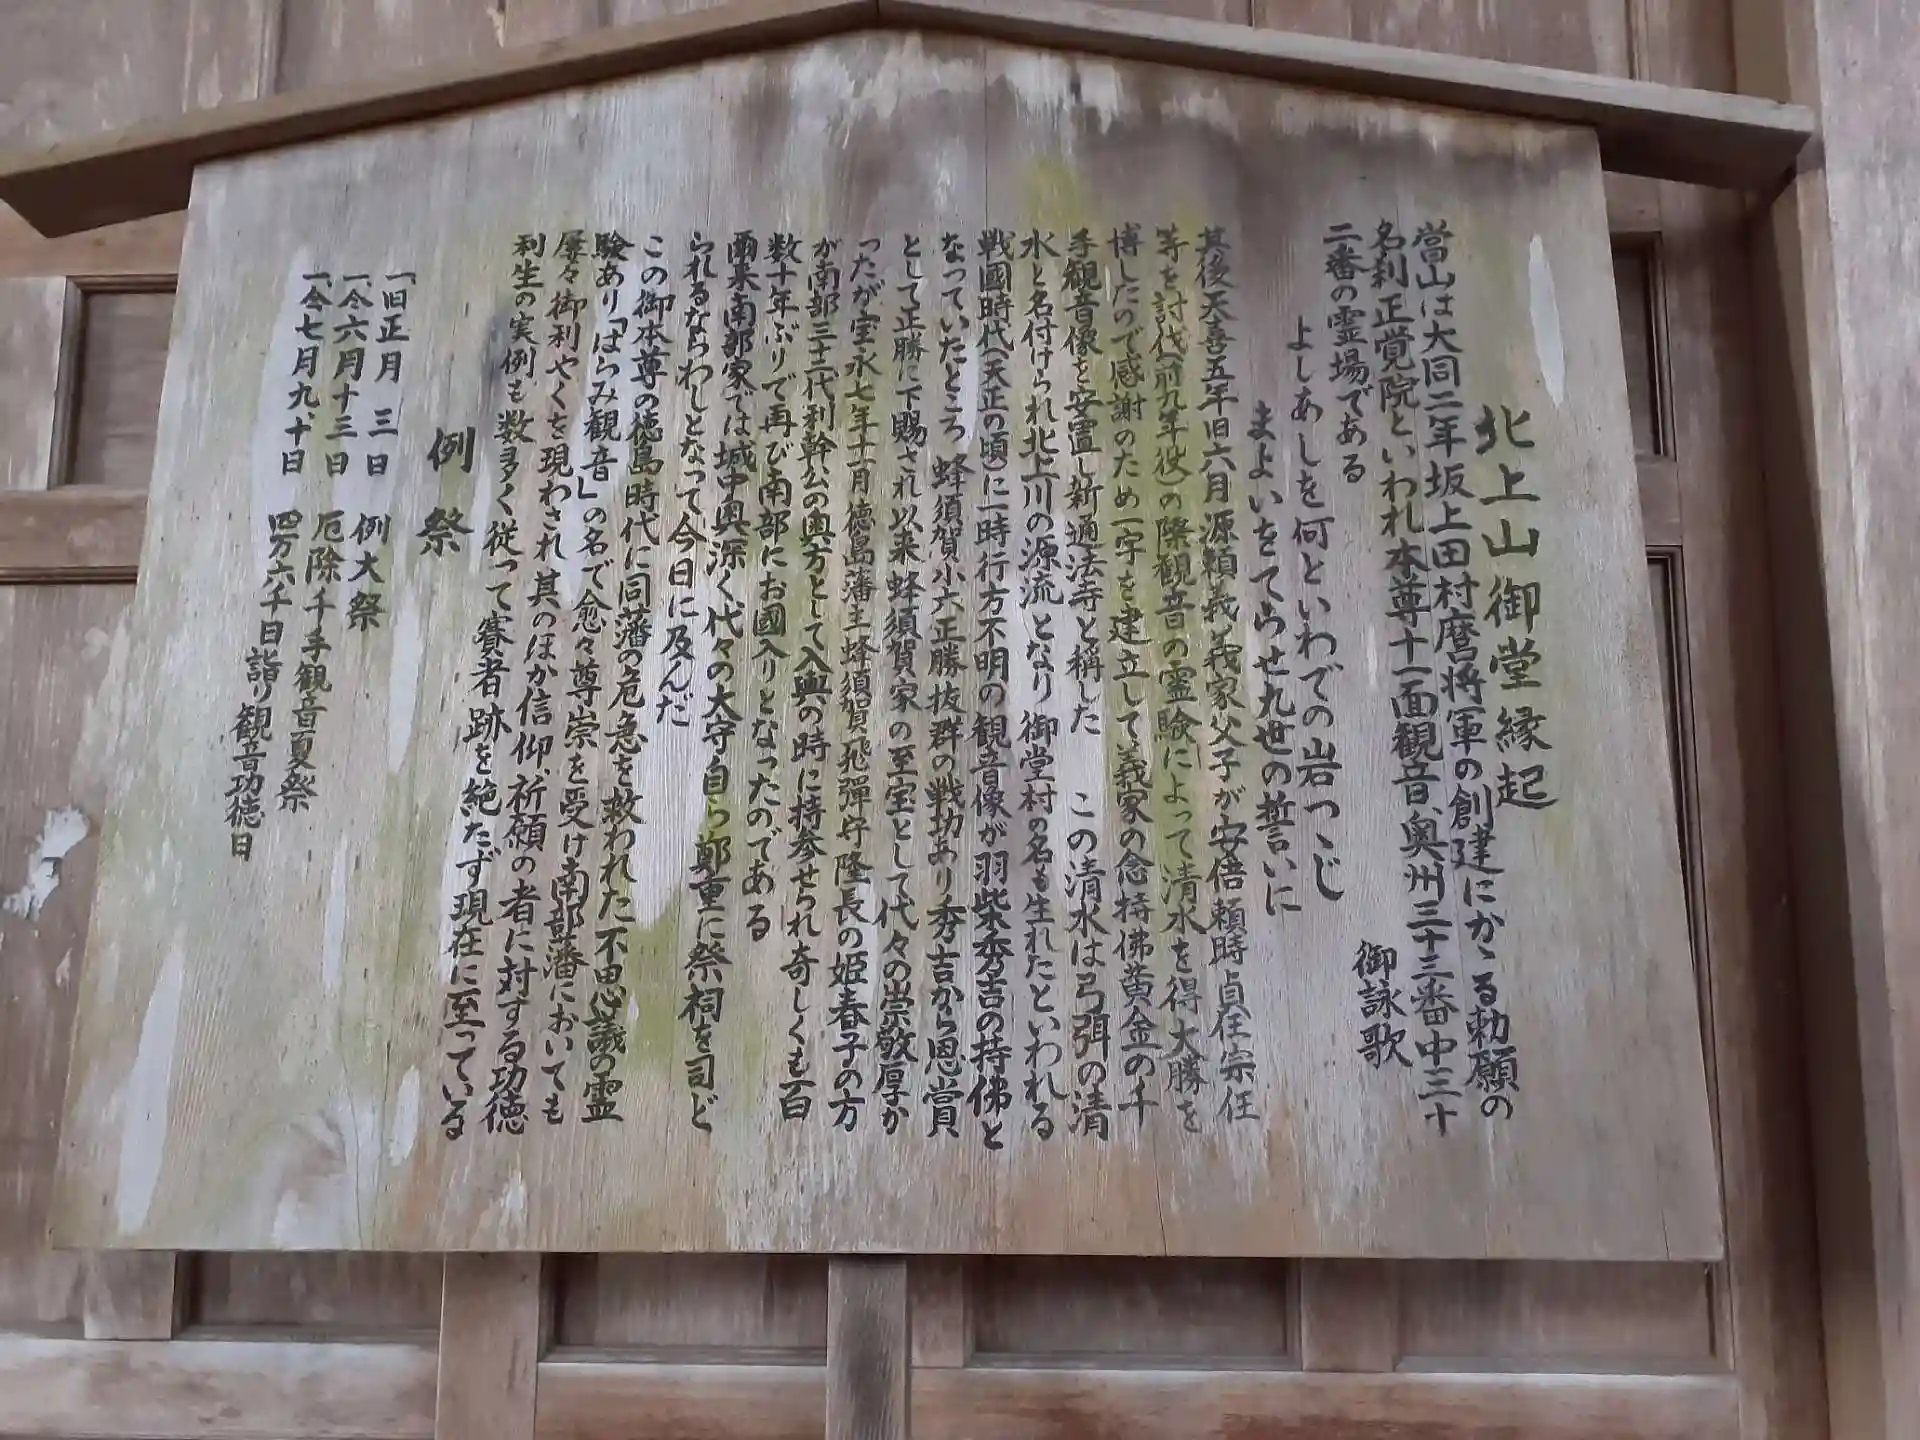 北上山御堂縁起
當山は大同二年坂上田村麿将軍の創建にかゝる勅願の
名刹正覚院といわれ本尊十一面観音、奥州三十三番中三十
二番の霊場である
御詠歌
よしあしを何といわでの岩つゝじ
まよいをてらせ九世の誓いに
其後天喜五年旧六月源頼義義家父子が安倍頼時貞任宗任
等を討伐(前九年役)の際観音の霊験によって清水を得大勝を
博したので感謝のため一宇を建立して義家の念持佛黄金の千
手観音像を安置し新通法寺と稱した この清水は弓弭の清
水と名付けられ北上川の源流となり御堂村の名も生れたといわれる
戦國時代(天正の頃)に一時行方不明の観音像が羽柴秀吉の持佛と
なっていたところ 蜂須賀小六正勝抜群の戦功あり秀吉から恩賞
として正勝に下賜され以来蜂須賀家の至宝として代々の崇敬厚か
ったが宝永七年十一月徳島藩主蜂須賀飛彈守隆長の姫春子の方
が南部三十二代利幹公の奥方として入輿の時に持参せられ奇しくも百
数十年ぶりで再び南部にお國入りとなったのである
爾来南部家では城中奥深く代々の大守自ら鄭重に祭祠を司ど
られるならわしとなって今日に及んだ
この御本尊の徳島時代に同藩の危急を救われた不思議の霊
験あり「はらみ観音」の名で愈々尊崇を受け南部藩においても
屡々御利やくを現わされ其のほか信仰、祈願の者に対する功徳
利生の実例も数多く従って賽者跡を絶たず現在に至っている
例祭
一、旧正月 三日 例大祭
一、仝六月十三日 厄除千手観音夏祭
一、仝七月九、十日 四万六千日詣り観音功徳日